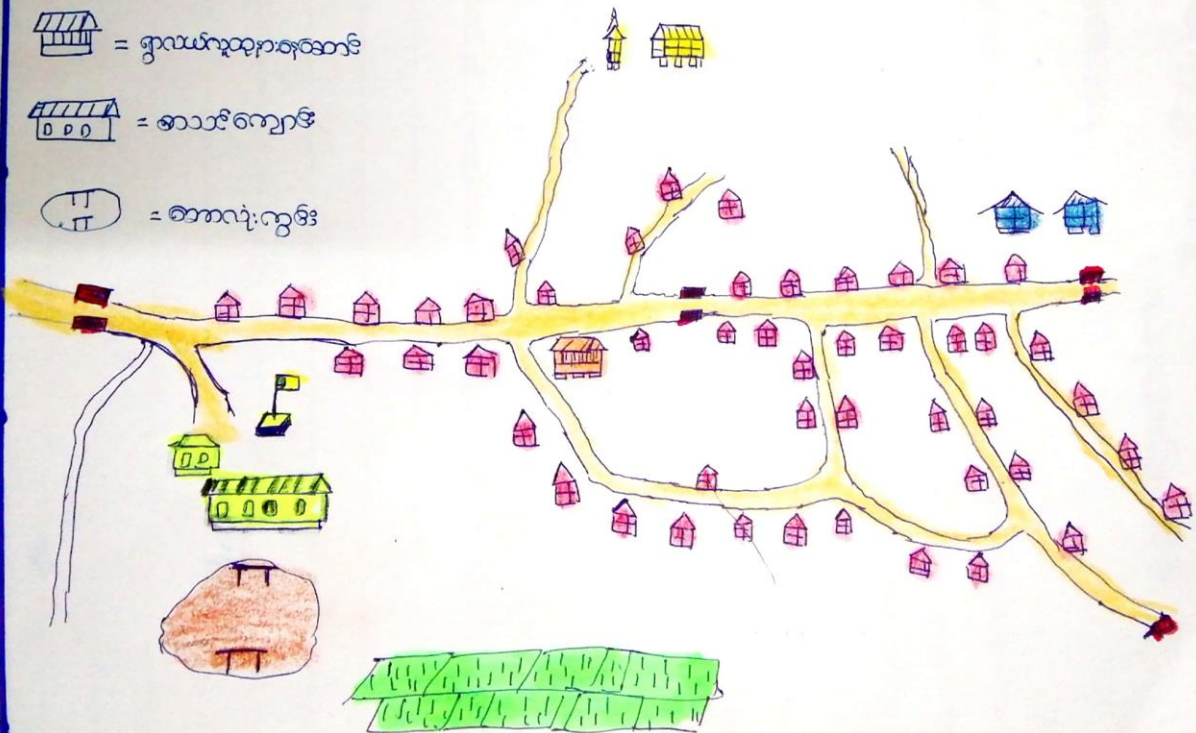 = ရွာလယ်လူထုနားနေဆောင်
= စာသင်ကျောင်း
= ဘောလုံးကွင်း